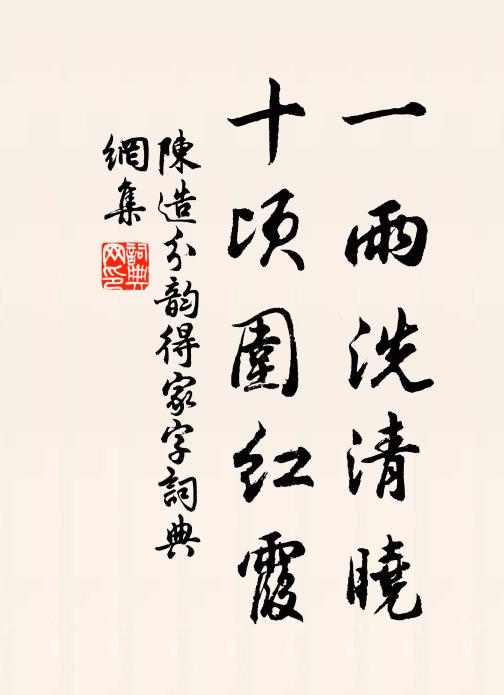 一雨洗清曉
十頃圍紅霞
陳造分韵得家字詞典
網集
詞典
网印